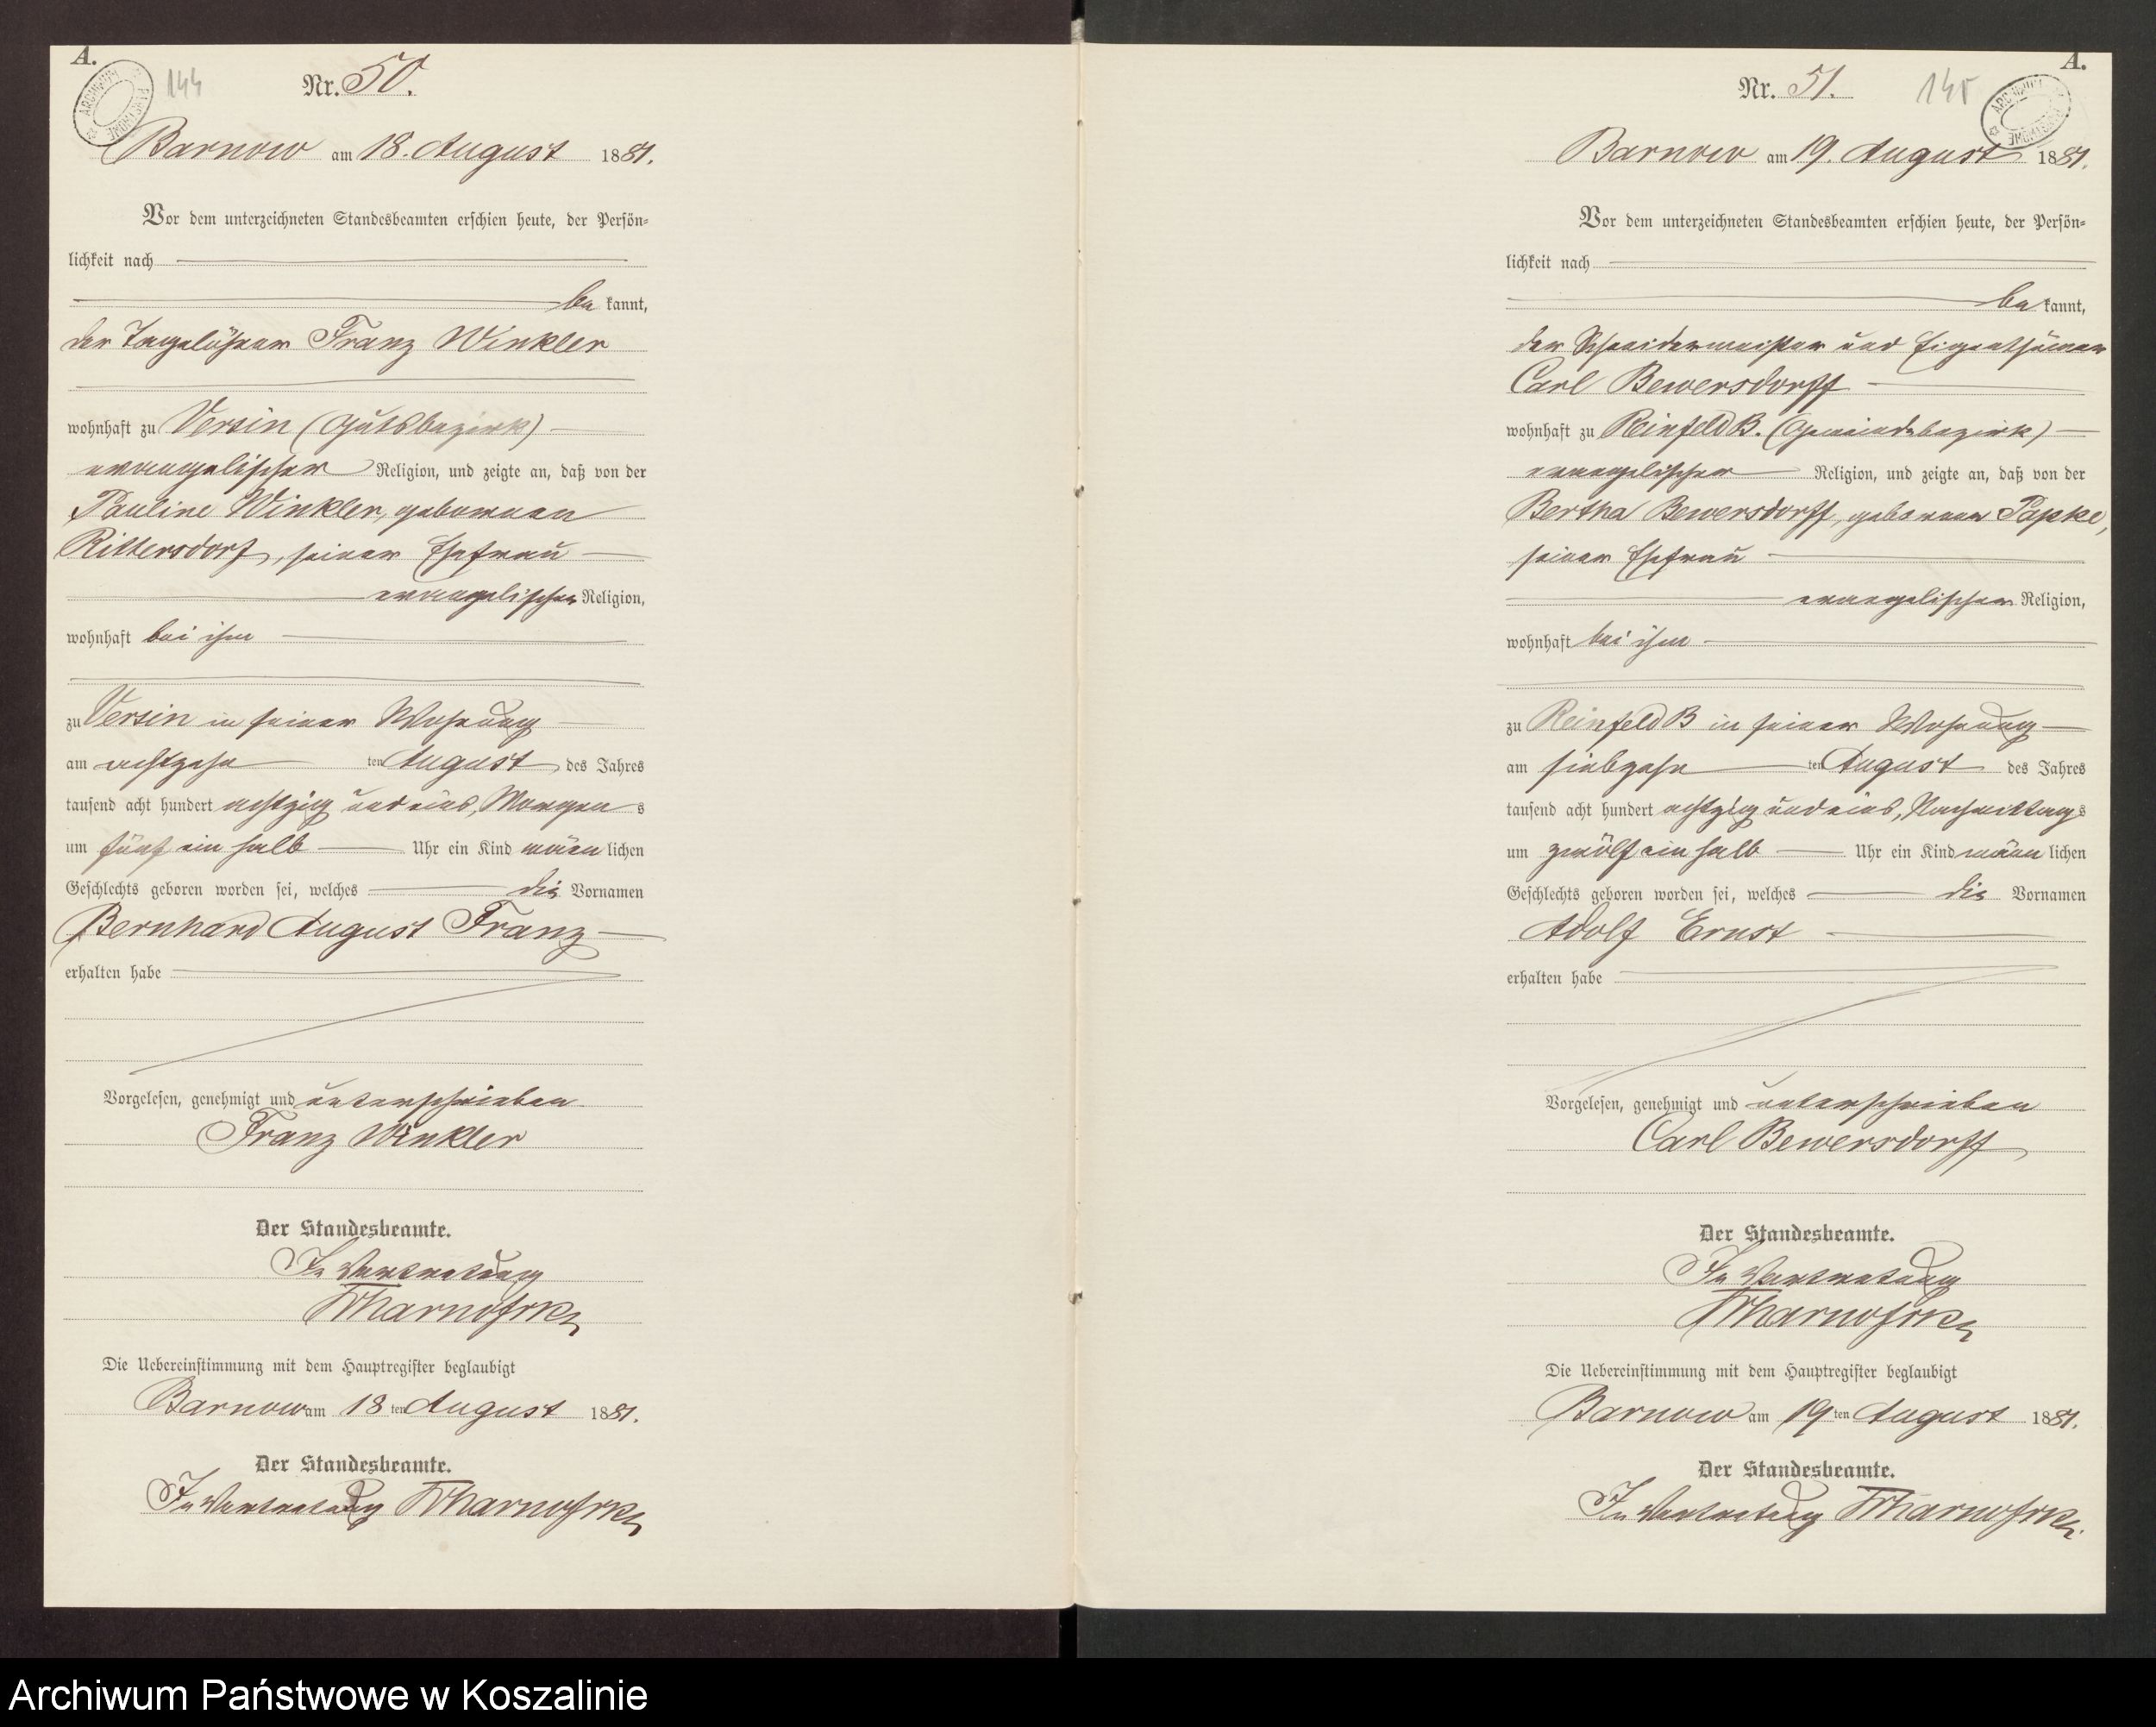 A.
144
Nr. 50.
Barnow am 18. August 1881.
Vor dem unterzeichneten Standesbeamten erschien heute, der Persön-
lichkeit nach
be kannt,
der Tagelöhner Franz Winkler
wohnhaft zu Versin (Gutsbezirk)
evangelischer Religion, und zeigte an, daß von der
Pauline Winkler, geborenen
Rittersdorf, seiner Ehefrau
evangelischer Religion,
wohnhaft bei ihm
zu Versin in seiner Wohnung
am achtzehn ten August des Jahres
tausend acht hundert achtzig und eins, Morgen s
um fünf ein halb Uhr ein Kind männ lichen
Geschlechts geboren worden sei, welches die Vornamen
Bernhard August Franz
erhalten habe
Vorgelesen, genehmigt und unterschrieben
Franz Winkler
Der Standesbeamte.
In Vertretung
Die Uebereinstimmung mit dem Hauptregister beglaubigt
Barnow am 18 ten August 1881.
Der Standesbeamte.
In Vertretung
A.
145
Nr. 51.
Barnow am 19. August 1881.
Vor dem unterzeichneten Standesbeamten erschien heute, der Persön-
lichkeit nach
be kannt,
der Schneidermeister und Eigenthümer
Carl Bewersdorff
wohnhaft zu Reinfeld B. (Gemeindebezirk)
evangelischer Religion, und zeigte an, daß von der
Bertha Bewersdorff, geborenen Papke,
seiner Ehefrau
evangelischer Religion,
wohnhaft bei ihm
zu Reinfeld B in seiner Wohnung
am siebzehn ten August des Jahres
tausend acht hundert achtzig und eins, Nachmittag s
um zwölf ein halb Uhr ein Kind männ lichen
Geschlechts geboren worden sei, welches die Vornamen
Adolf Ernst
erhalten habe
Vorgelesen, genehmigt und unterschrieben
Carl Bewersdorff
Der Standesbeamte.
In Vertretung
Die Uebereinstimmung mit dem Hauptregister beglaubigt
Barnow am 19 ten August 1881.
Der Standesbeamte.
In Vertretung
Archiwum Państwowe w Koszalinie